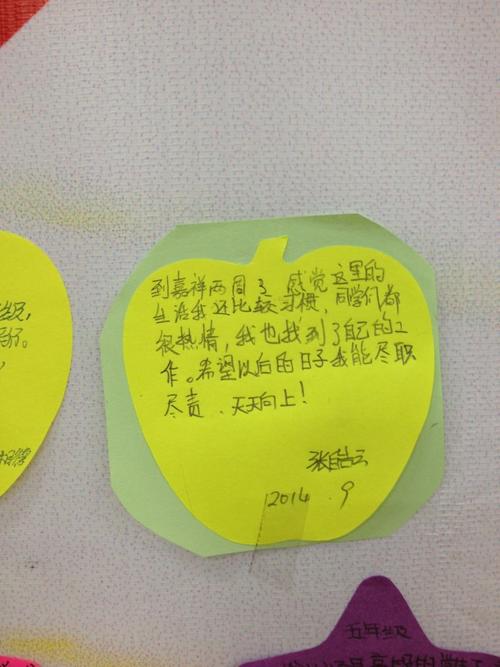 到嘉祥两周了 感觉这里的
生活我还比较习惯，同学们都
很热情，我也找到了自己的工
作。希望以后的日子我能尽职
尽责、天天向上！
张皓云
2014.9
五年级